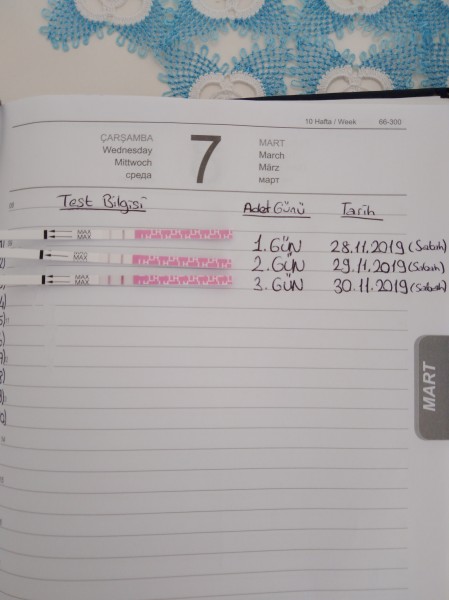 10 Hafta / Week 66-300
ÇARŞAMBA
Wednesday
Mittwoch
среда
7
MART
March
März
март
Test Bilgisi Adet Günü Tarih
MAX
MAX
1. GÜN 28.11.2019 (Sabah)
MAX
MAX
2. GÜN 29.11.2019 (Sabah)
MAX
MAX
3. GÜN 30.11.2019 (Sabah)
4)
5)
6)
7)
8)
9)
MART